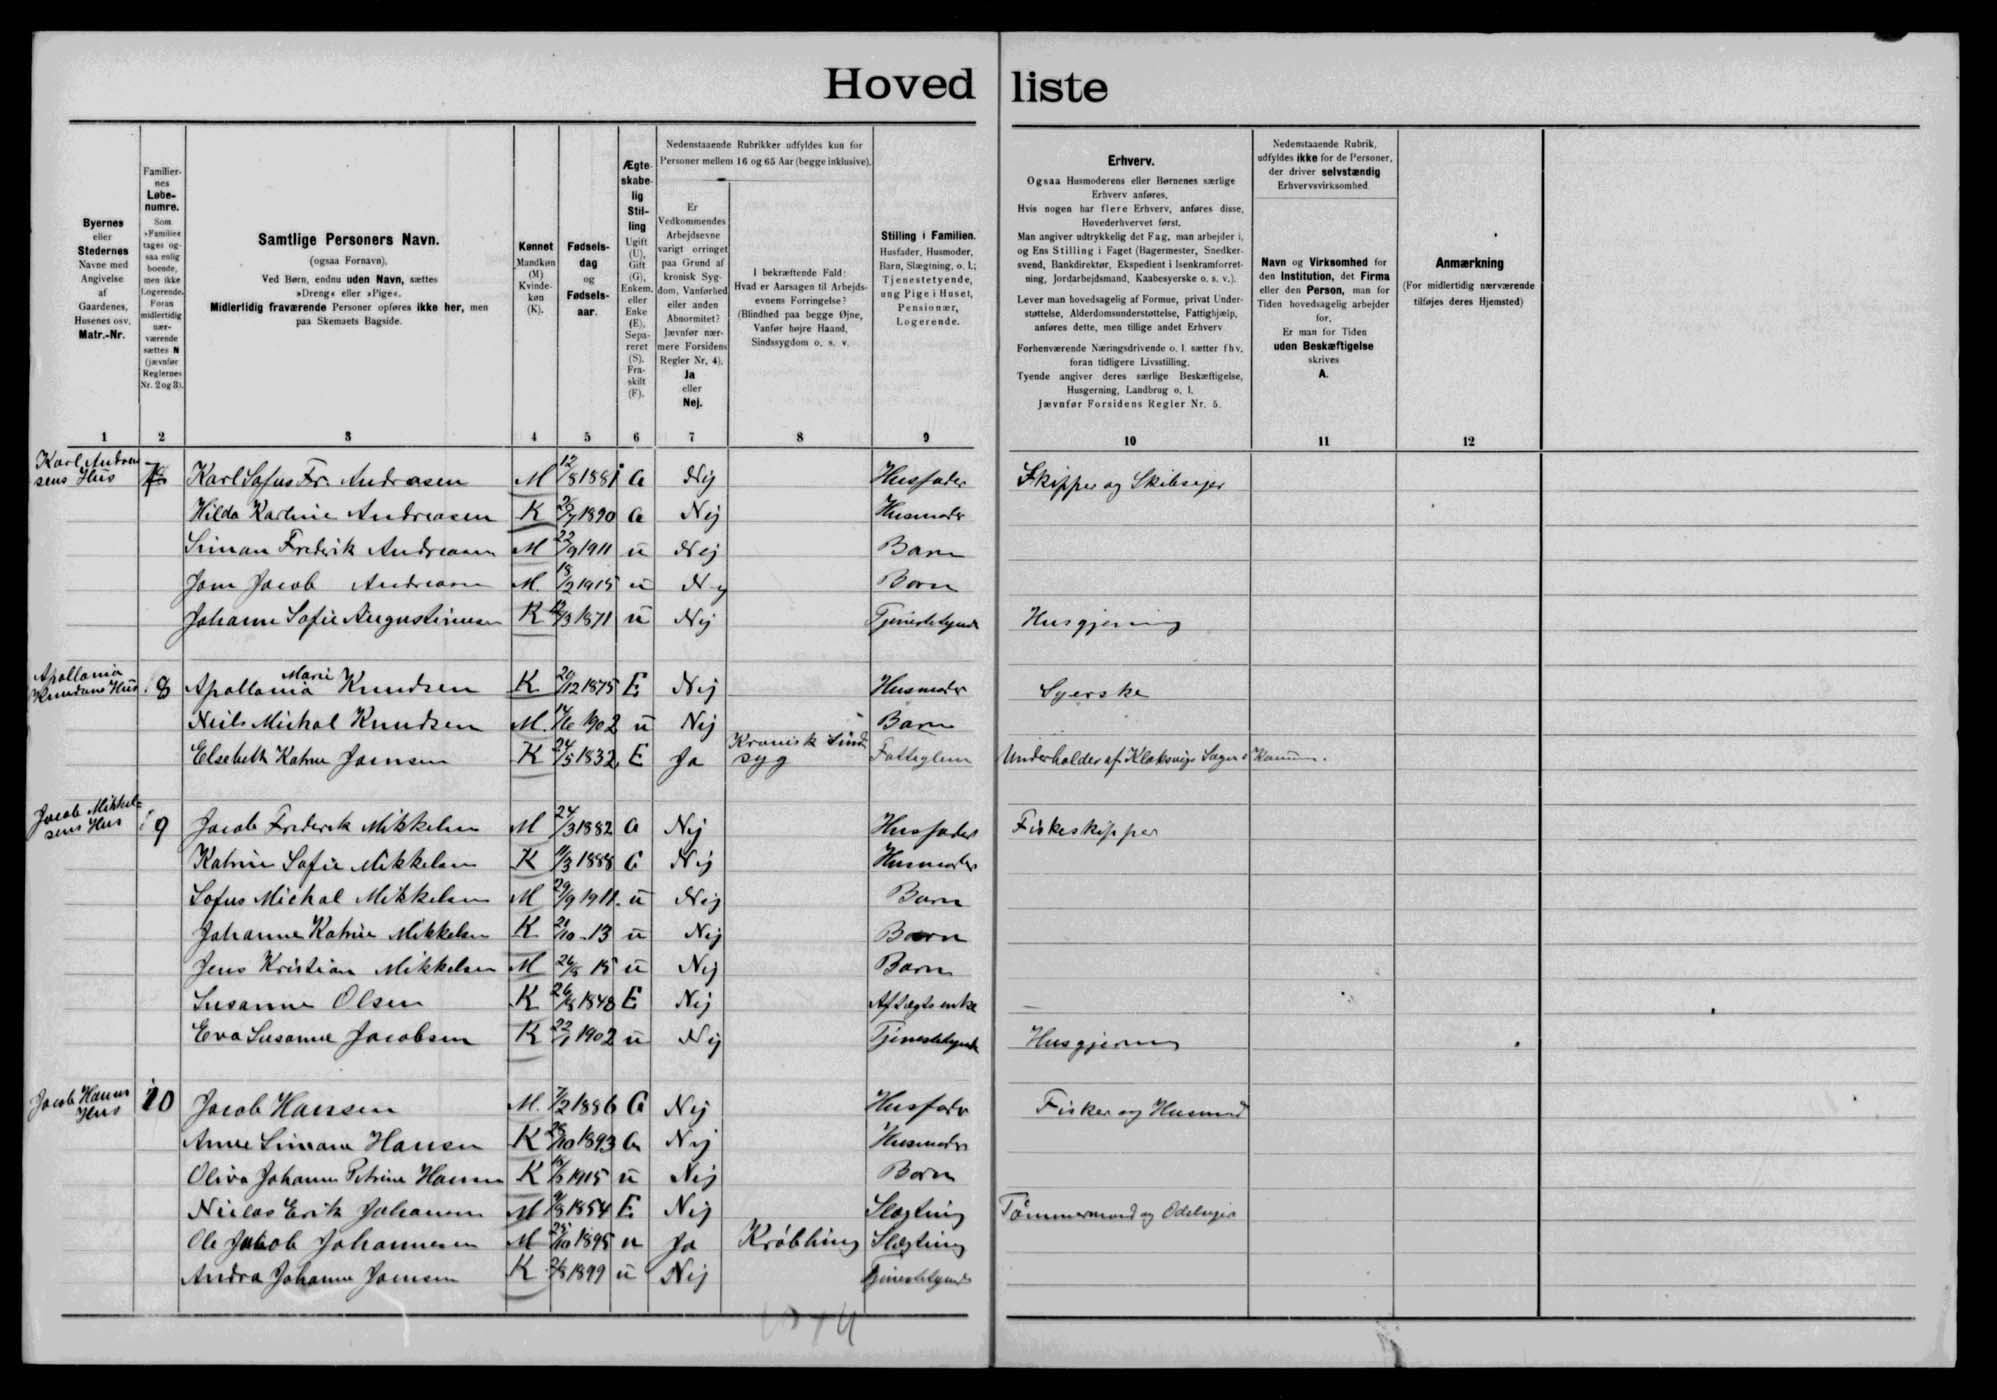 Hoved liste
Nedenstaaende Rubrikker udfyldes kun for
Personer mellem 16 og 65 Aar (begge inklusive).
Byernes
eller
Stedernes
Navne med
Angivelse
af
Gaardenes,
Husenes osv.
Matr.-Nr.
Familier-
nes
Løbe-
numre.
Som
»Familie«
tages og-
saa enlig
boende,
men ikke
Logerende.
Foran
midlertidig
nær-
værende
sættes N
(jævnfør
Reglernes
Nr. 2 og 3).
Samtlige Personers Navn.
(ogsaa Fornavn).
Ved Børn, endnu uden Navn, sættes
»Dreng« eller »Pige«.
Midlertidig fraværende Personer opføres ikke her, men
paa Skemaets Bagside.
Kønnet
Mandkøn
(M)
Kvinde-
køn
(K).
Fødsels-
dag
og
Fødsels-
aar.
Ægte-
skabe-
lig
Stil-
ling
Ugift
(U),
Gift
(G),
Enkem.
eller
Enke
(E),
Sepa-
reret
(S).
Fra-
skilt
(F).
Er
Vedkommendes
Arbejdsevne
varigt forringet
paa Grund af
kronisk Syg-
dom, Vanførhed
eller anden
Abnormitet?
Jævnfør nær-
mere Forsidens
Regler Nr. 4).
Ja
eller
Nej.
I bekræftende Fald:
Hvad er Aarsagen til Arbejds-
evnens Forringelse?
(Blindhed paa begge Øjne,
Vanfør højre Haand,
Sindssygdom o. s. v.
Stilling i Familien.
Husfader, Husmoder,
Barn, Slægtning, o. l.;
Tjenestetyende,
ung Pige i Huset,
Pensionær,
Logerende.
Erhverv.
Ogsaa Husmoderens eller Børnenes særlige
Erhverv anføres.
Hvis nogen har flere Erhverv, anføres disse,
Hovederhvervet først.
Man angiver udtrykkelig det Fag, man arbejder i,
og Ens Stilling i Faget (Bagermester, Snedker-
svend, Bankdirektør, Ekspedient i Isenkramforret-
ning, Jordarbejdsmand, Kaabesyerske o. s. v.).
Lever man hovedsagelig af Formue, privat Under-
støttelse, Alderdomsunderstøttelse, Fattighjælp,
anføres dette, men tillige andet Erhverv
Forhenværende Næringsdrivende o. l. sætter fhv.
foran tidligere Livsstilling.
Tyende angiver deres særlige Beskæftigelse,
Husgerning, Landbrug o. l.
Jævnfør Forsidens Regler Nr. 5.
Nedenstaaende Rubrik,
udfyldes ikke for de Personer,
der driver selvstændig
Erhvervsvirksomhed.
Navn og Virksomhed for
den Institution, det Firma
eller den Person, man for
Tiden hovedsagelig arbejder
for.
Er man for Tiden
uden Beskæftigelse
skrives
A.
Anmærkning
(For midlertidig nærværende
tilføjes deres Hjemsted)
1 2 3 4 5 6 7 8 9 10 11 12
Karl Andrea
sens Hus 7 Karl Sofus Fr. Andreasen M 12/8 1881 G Nej Husfader Skipper og Skibsejer
Hilda Katrine Andreasen K 1890 G Nej Husmoder
Simon Frederik Andreasen M 22/9 1911 u Nej Barn
Jacob Andreasen M. 18/2 1915 u Nej Barn
Johanne Sofie Augustinusen K 12/3 1871 u Nej Tjenestetyende Husgjerning
Apollonia
Knudsens Hus 8 Apollonia Marie Knudsen K 20/12 1875 E Nej Husmoder Syerske
Niels Michal Knudsen M. 1902 u Nej Barn
Elsebeth Katrine Joensen K 24/5 1832 E Ja Kronisk Sind
syg Fattiglem Underholdes af Klaksvigs Sogns Komm.
Jacob Mikkel-
sens Hus 9 Jacob Frederik Mikkelsen M 24/3 1882 G Nej Husfader Fiskeskipper
Katrine Sofie Mikkelsen K 1888 G Nej Husmoder
Sofus Michal Mikkelsen M 29/9 1911. u Nej Barn
Johanne Katrine Mikkelsen K 21/10 -13 u Nej Barn
Jens Kristian Mikkelsen M 26/8 15 u Nej Barn
Susanne Olsen K 26/8 1848 E Nej Aftægtsenke
Eva Susanne Jacobsen K 22/1 1902 u Nej Tjenestetyende Husgjerning
Jacob Hansens
Hus 10 Jacob Hansen M. 7/2 1886 G Nej Husfader Fisker og Husmand
Anne Simone Hansen K 28/10 1893 G Nej Husmoder
Oliva Johanne Petrine Hansen K 1915 u Nej Barn
Niclas Erik Johansen M 1854 E Nej Slægtning Tømmermand og Odelsejer
Ole Jakob Johannesen M 25/10 1895 u Ja Krøbling Slægtning
Andrea Johanne Joensen K 1899 u Nej Tjenestetyende